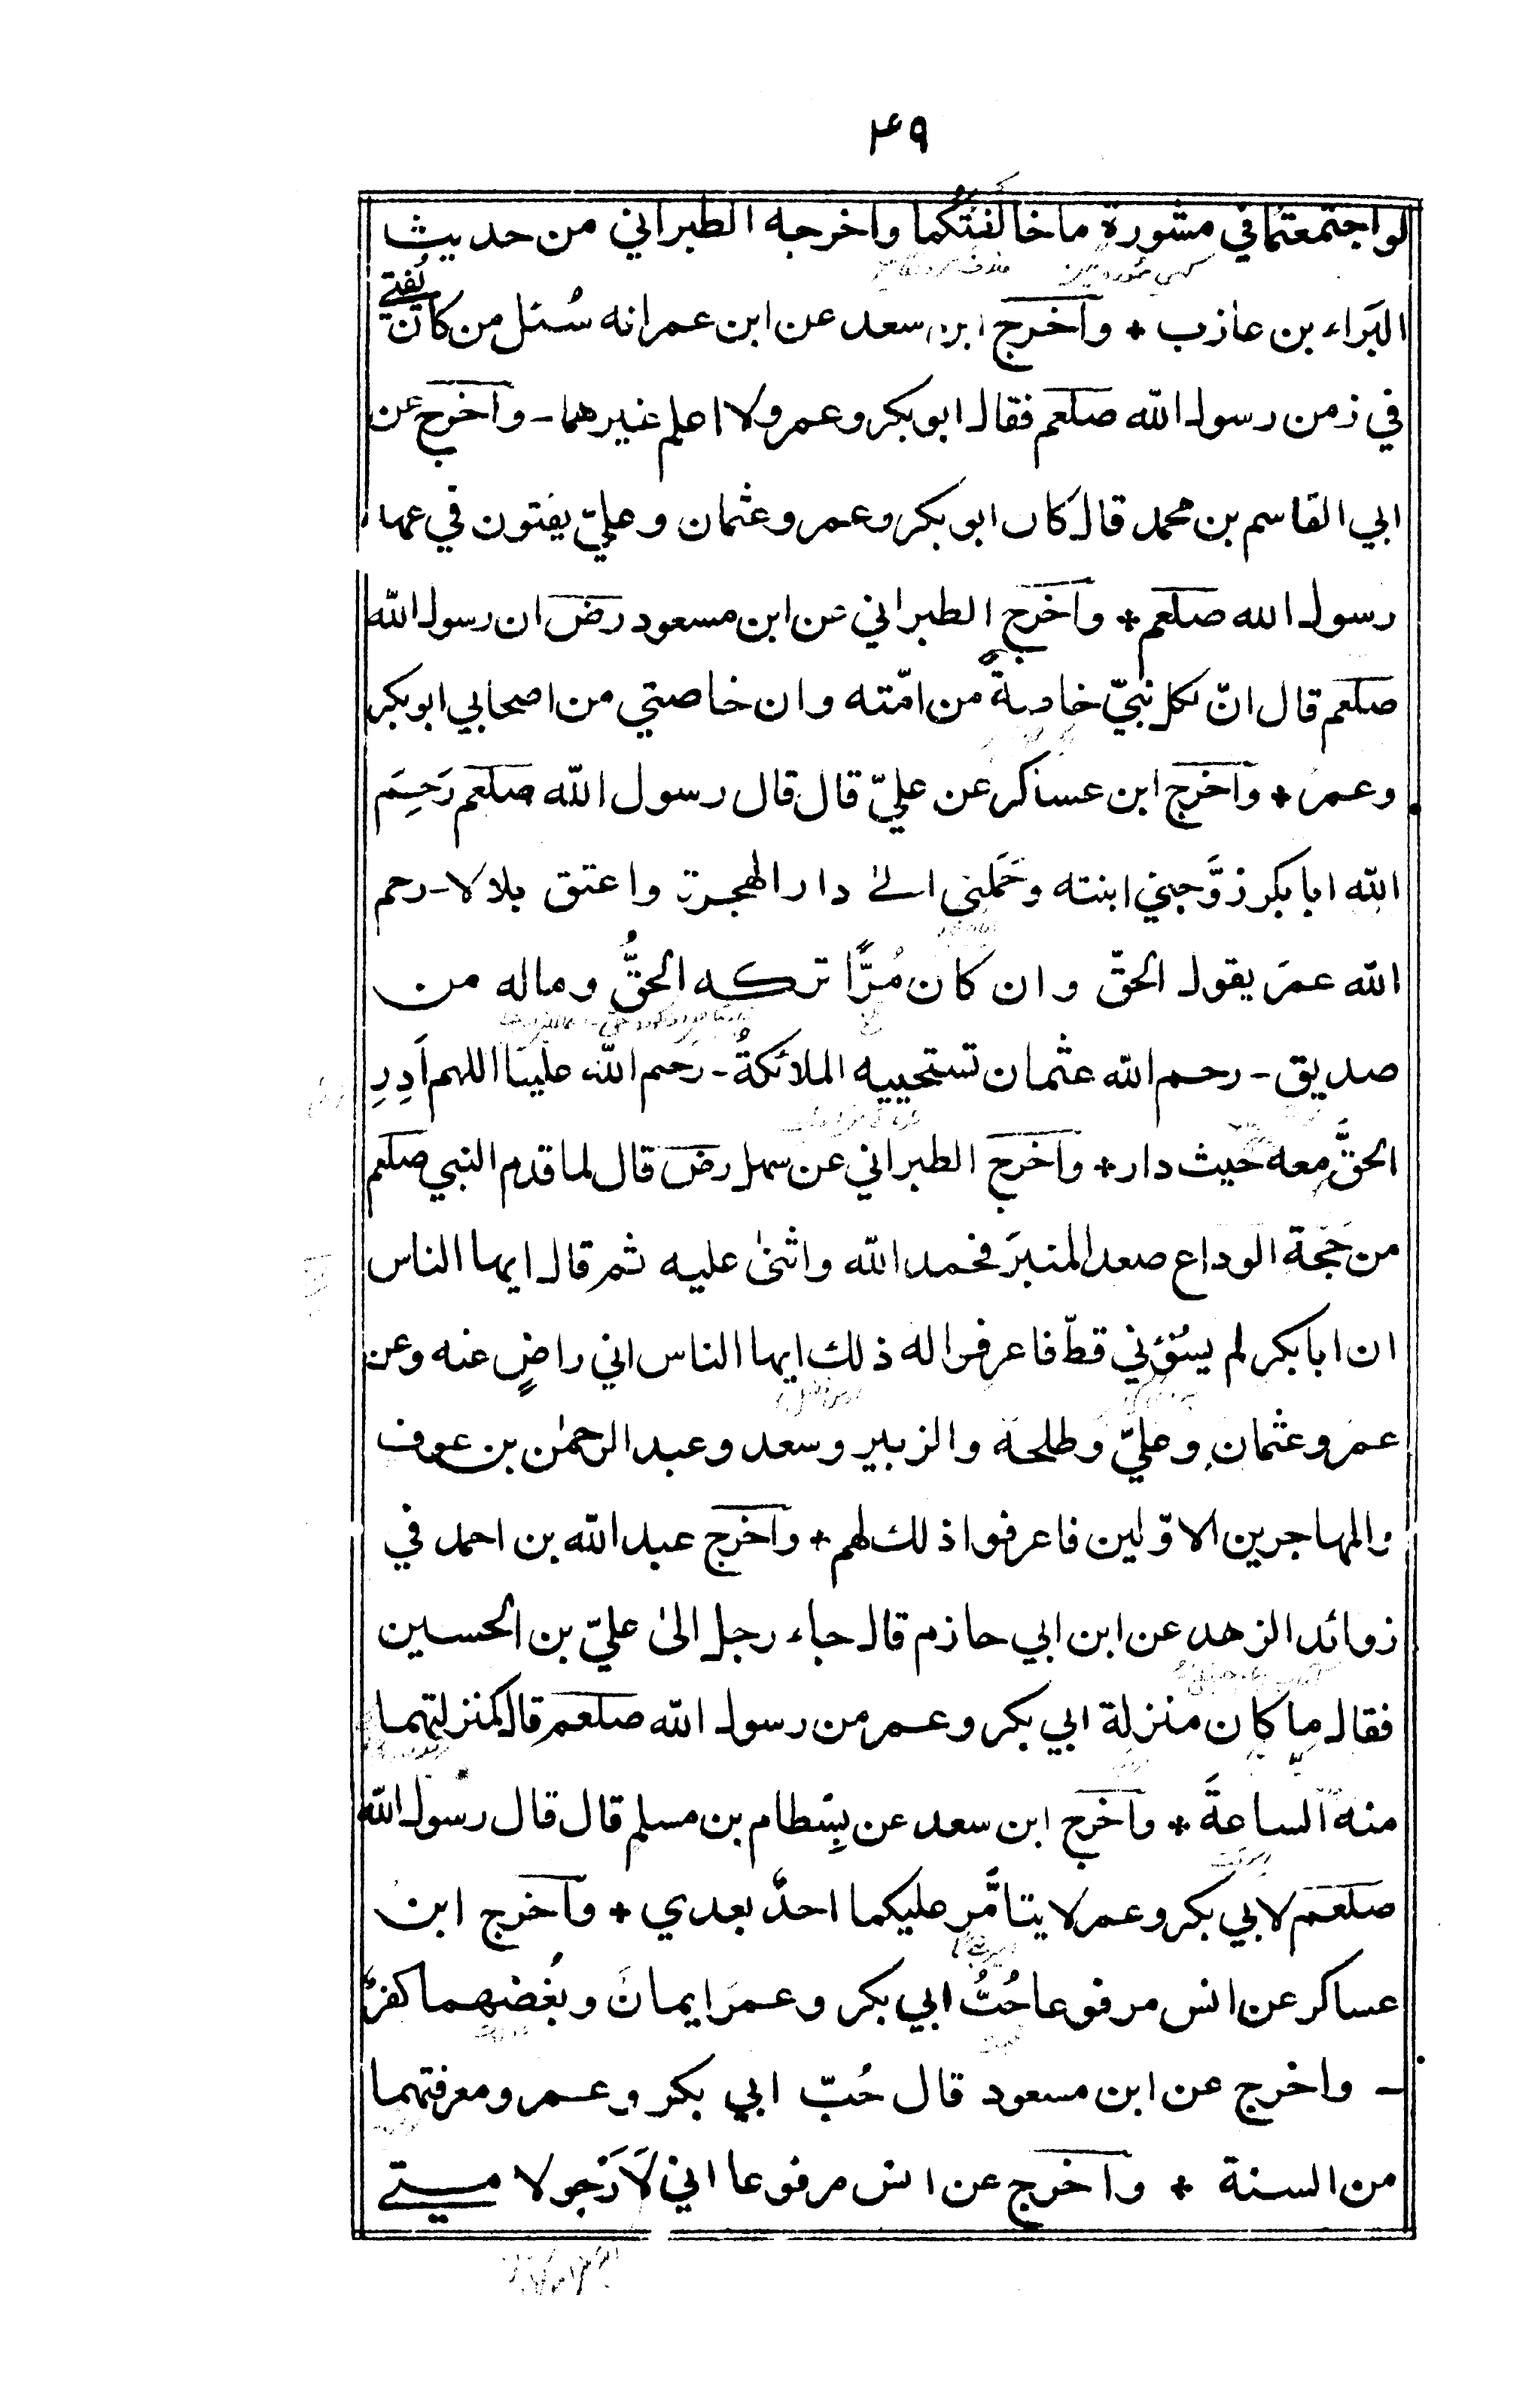 ٤٩
لو اجتمعتما في مشورة ما خالفتُكُما واخرجه الطبراني من حديث
البَراء بن عازب * وآخرج ابن سعد عن ابن عمر انه سُئل من كان يُفتي
في زمن رسول الله صلعم فقال ابوبكر وعمر ولا اعلم غيرهما - وآخرج عن
ابي القاسم بن محمد قال كان ابوبكر وعمر وعثمان وعليّ يفتون في عهد
رسول الله صلعم * وآخرج الطبراني عن ابن مسعود رض ان رسول الله
صلعم قال انّ لكل نبيّ خاصةً من امّته وان خاصتي من اصحابي ابوبكر
وعمرُ * وآخرج ابن عساكر عن عليّ قال قال رسول الله صلعم رَحِمَ
الله ابا بكر زوَّجني ابنته وحَمَلني الى دار الهجرة واعتق بلالا - رحم
الله عمرَ يقول الحقّ وان كان مُرًّا تركه الحقُّ وماله من
صديق - رحم الله عثمان تستحييه الملائكةُ - رحم الله عليّا اللهم اَدِرِ
الحقَّ معه حيث دار * وآخرج الطبراني عن سهل رض قال لما قدم النبي صلعم
من حَجّة الوداع صعد المنبرَ فحمد الله واثنىٰ عليه ثم قال ايها الناس
ان ابا بكر لم يسُؤني قطّ فاعرفوا له ذلك ايها الناس اني راضٍ عنه وعن
عمر وعثمان وعليّ وطلحة والزبير وسعد وعبد الرحمٰن بن عوف
والمهاجرين الاوّلين فاعرفوا ذلك لهم * وآخرج عبد الله بن احمد في
زوائد الزهد عن ابن ابي حازم قال جاء رجل الىٰ عليّ بن الحسين
فقال ما كان منزلة ابي بكر وعمر من رسول الله صلعم قال كمنزلتهما
منه الساعةَ * وآخرج ابن سعد عن بِسْطام بن مسلم قال قال رسول الله
صلعم لابي بكر وعمر لا يتامَّر عليكما احدٌ بعدي * وآخرج ابن
عساكر عن انس مرفوعا حُبُّ ابي بكر وعمرَ ايمان وبُغضهما كفرٌ
- واخرج عن ابن مسعود قال حُبّ ابي بكر وعمر ومعرفتهما
من السنة * وآخرج عن انس مرفوعا اني لَاَرْجو لامّتي